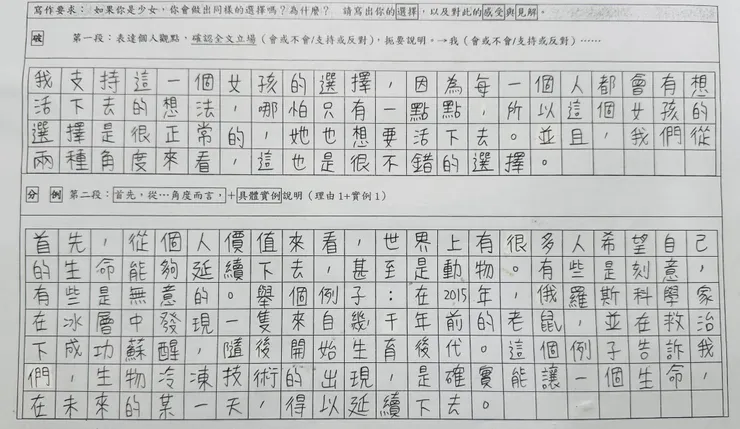 寫作要求：如果你是少女，你會做出同樣的選擇嗎？為什麼？ 請寫出你的選擇，以及對此的感受與見解。
破 第一段：表達個人觀點，確認全文立場（會或不會/支持或反對），扼要說明。→我（會或不會/支持或反對）……
我支持這一個女孩的選擇，因為每一個人都會有想
活下去的想法，哪怕只有一點點，所以這個女孩的
選擇是很正常的，她也想要活下去。並且，我們從
兩種角度來看，這也是很不錯的選擇。
分 例 第二段：首先，從…角度而言，＋具體實例說明（理由1+實例1）
首先，從個人價值來看，世界上有很多人希望自己
的生命能夠延續下去，甚至是動物。有些是刻意，
有些是無意的。舉個例子：在2015年，俄羅斯科學家
在冰層中發現一隻來自幾千年前的老鼠，並在救治
下成功蘇醒，隨後開始生育後代。這個例子告訴我
們，生物冷凍技術的出現，是確實能讓一個生命，
在未來的某一天，得以延續下去。